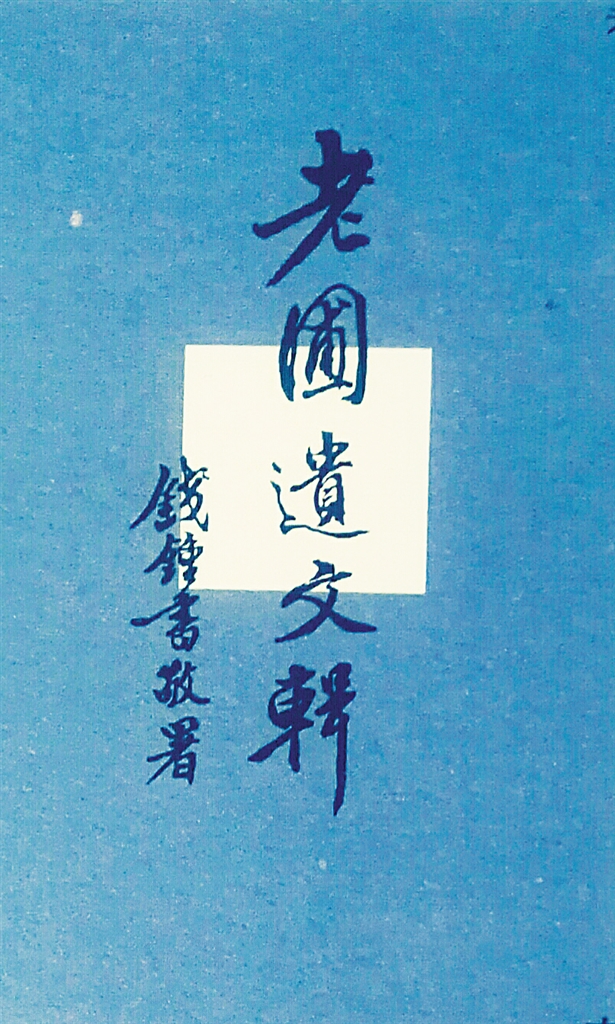 老圃遺文輯
錢鍾書敬署